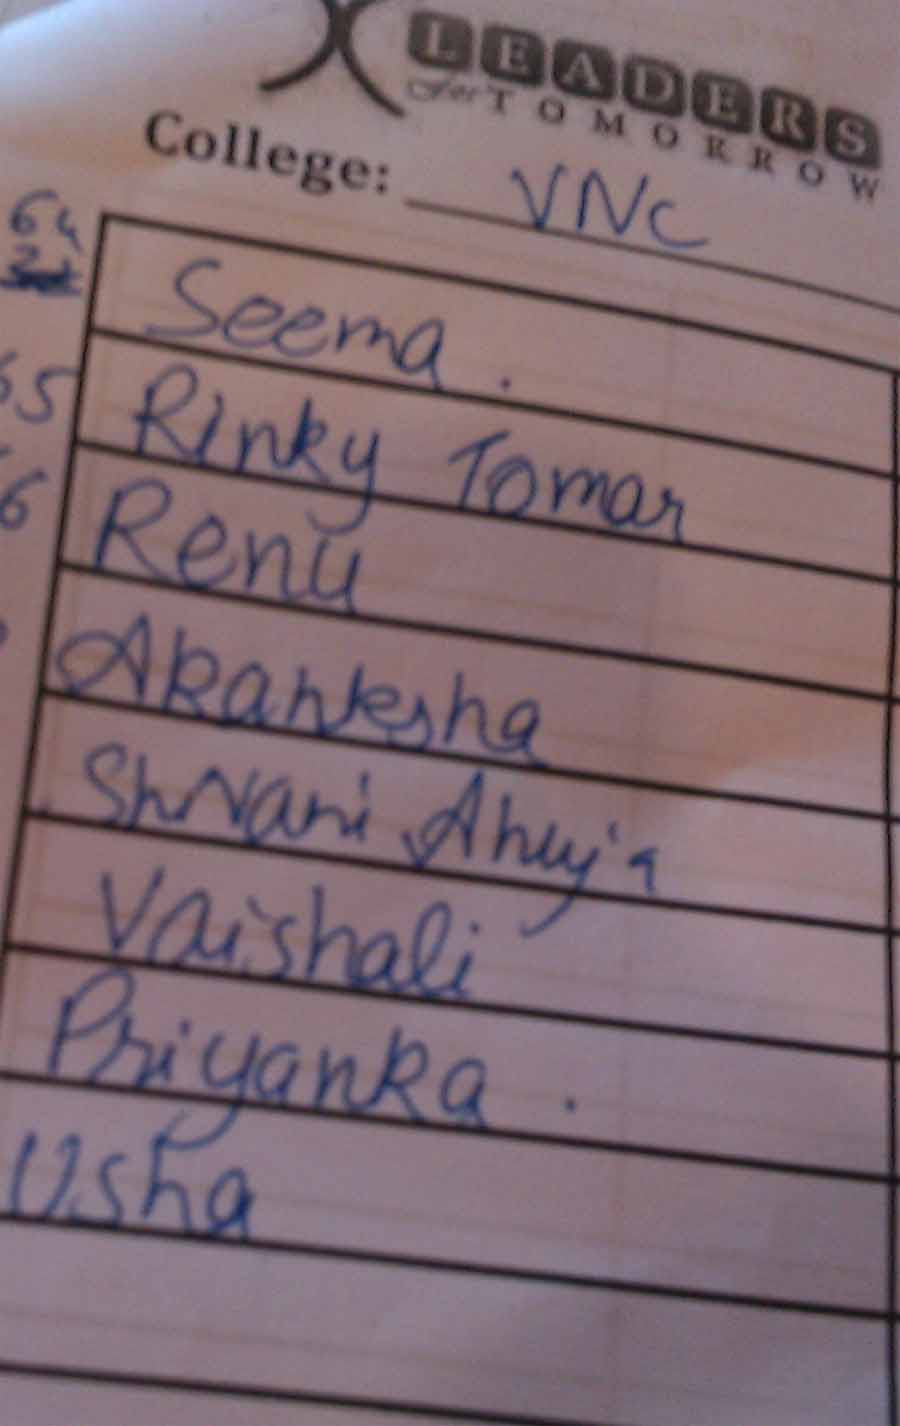 LEADERS
for TOMORROW
College: VNC
64 Seema.
65 Rinky Tomar
66 Renu
Akanksha
Shivani Ahuja
Vaishali
Priyanka.
Usha